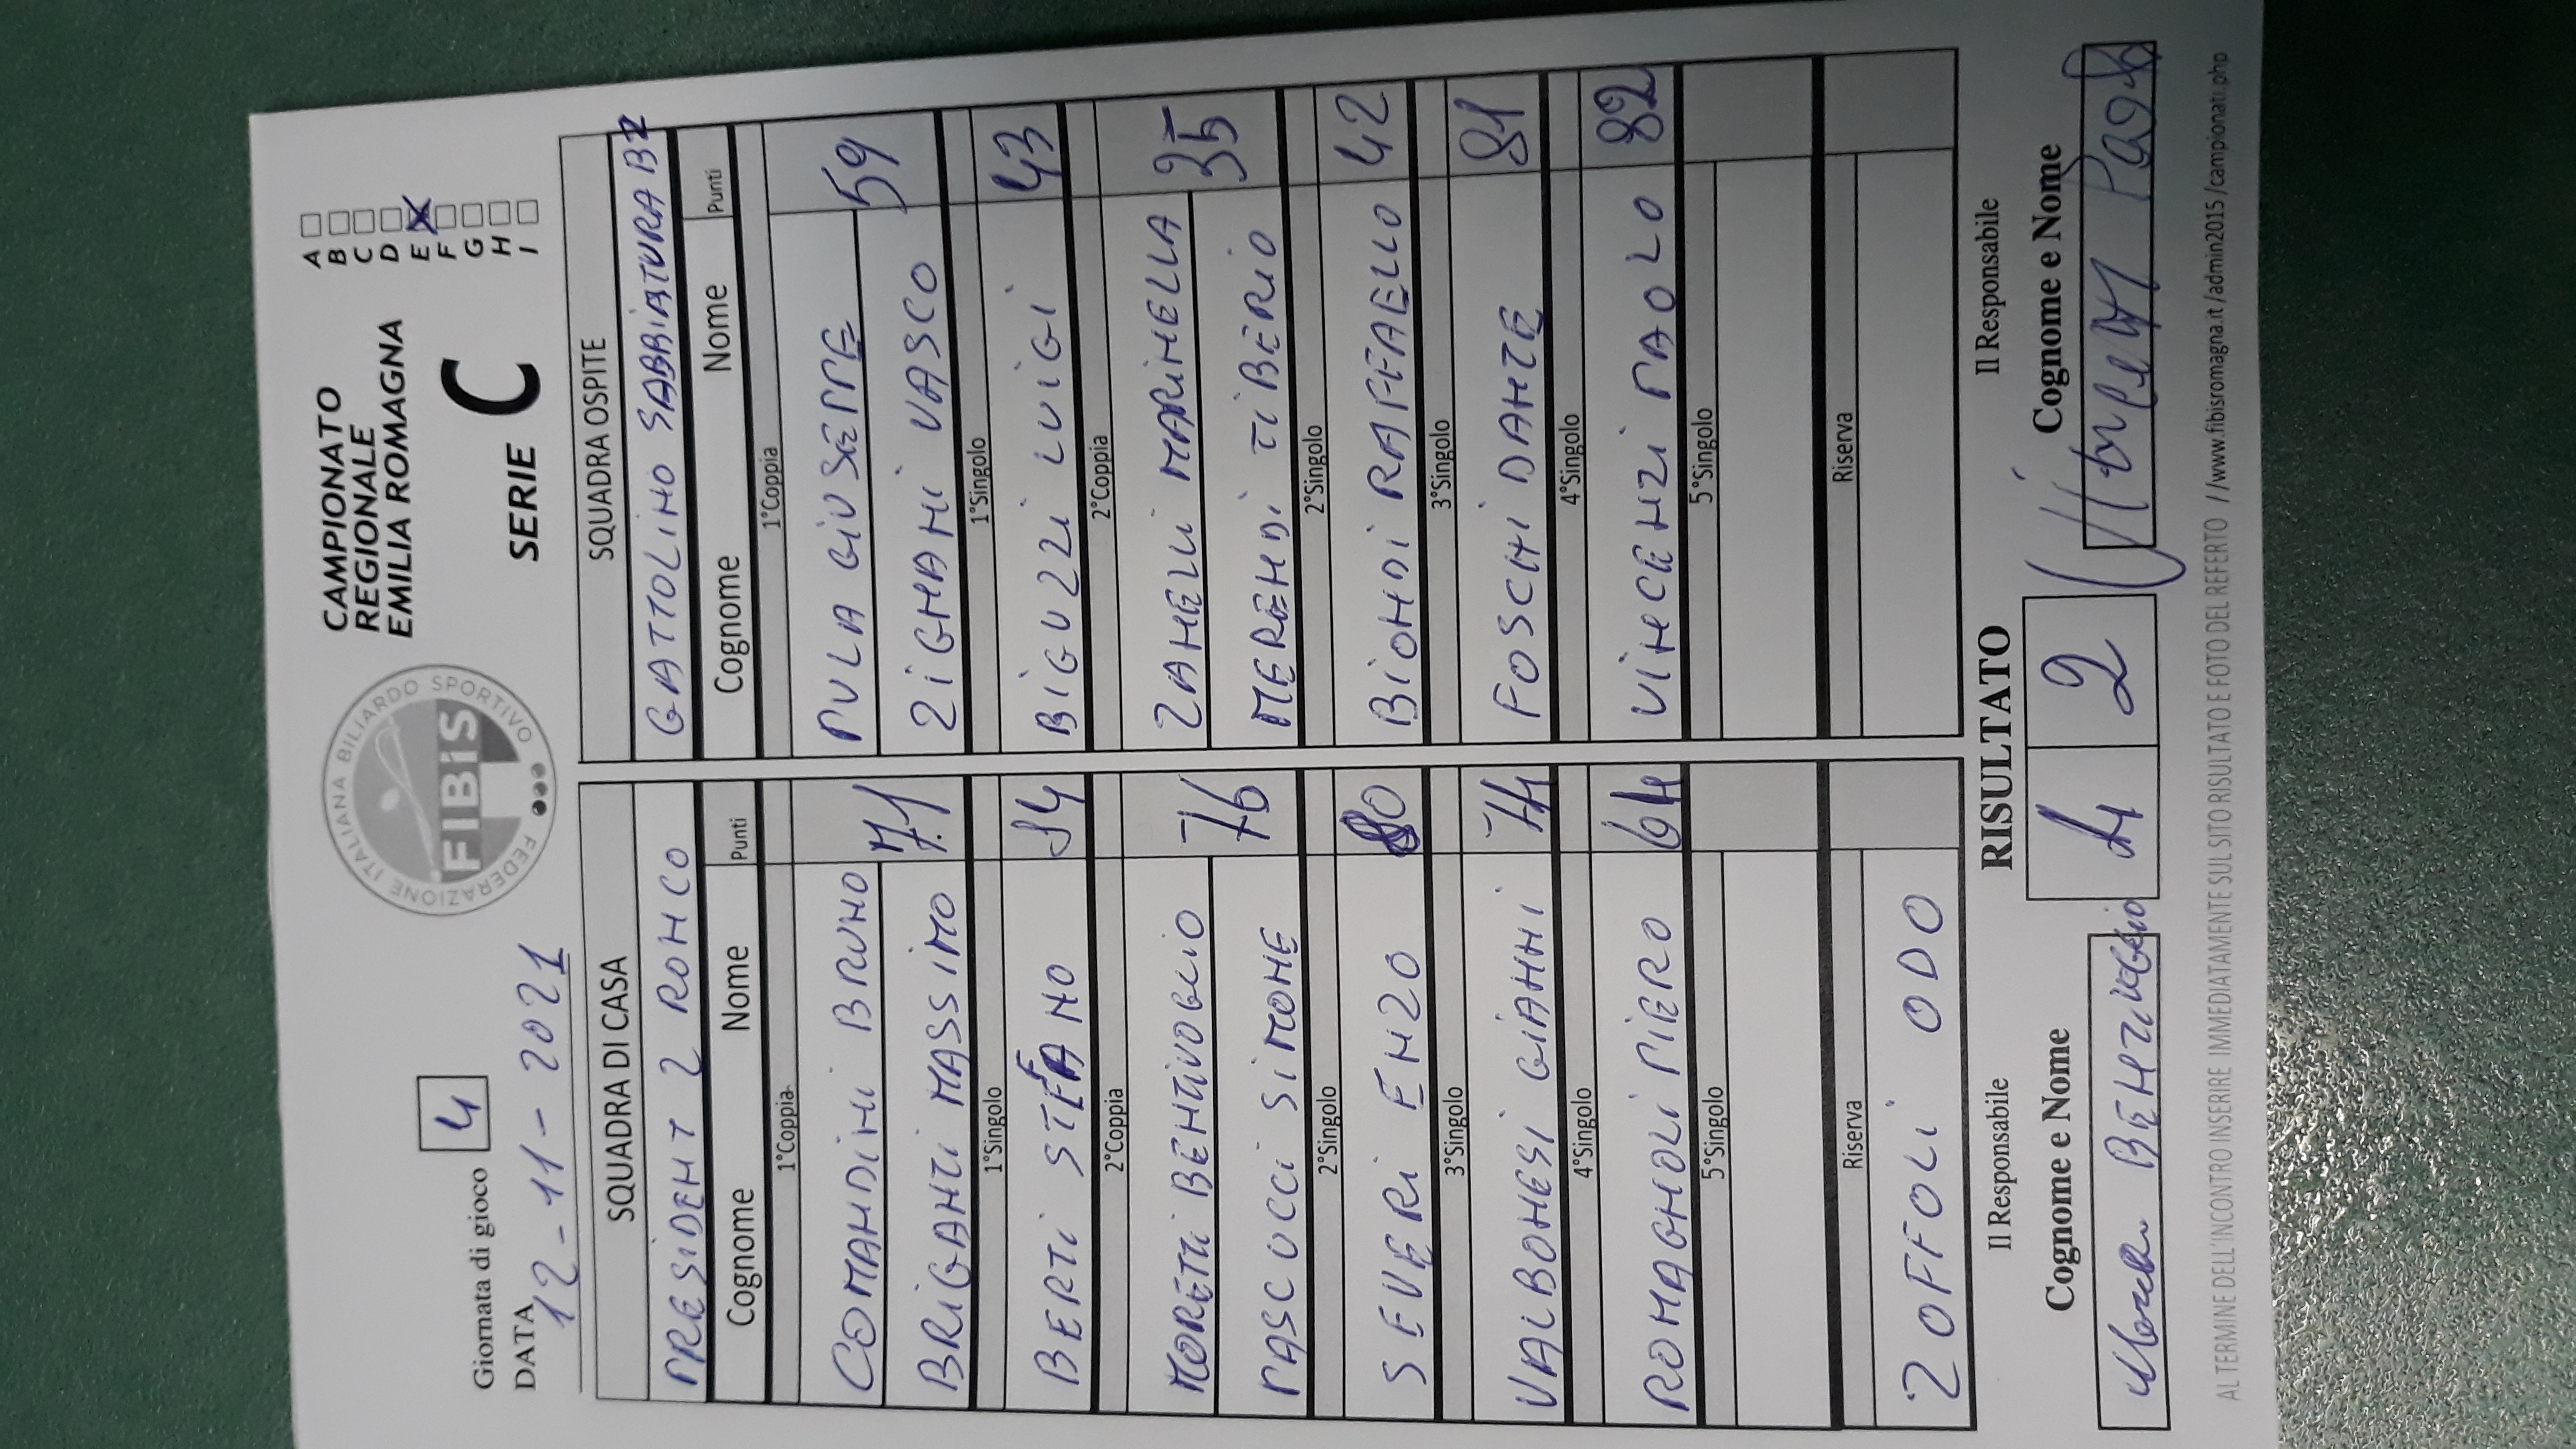 Giornata di gioco 4
DATA 12-11-2021
FEDERAZIONE ITALIANA BILIARDO SPORTIVO
FIBiS
CAMPIONATO
REGIONALE
EMILIA ROMAGNA
SERIE C
A
B
C
D
E X
F
G
H
I
SQUADRA DI CASA SQUADRA OSPITE
PRESIDENT 2 RONCO GATTOLINO SABBIATURA B2
Cognome Nome Punti Cognome Nome Punti
1°Coppia 1°Coppia
COMANDINI BRUNO PULA GIUSEPPE
71 59
BRIGANTI MASSIMO ZIGNANI VASCO
1°Singolo 1°Singolo
BERTI STEFANO 84 BIGUZZI LUIGI 43
2°Coppia 2°Coppia
MORETTI BENTIVOGLIO ZANELLI MARINELLA
76 35
PASCUCCI SIMONE MERENDI TIBERIO
2°Singolo 2°Singolo
SEVERI ENZO 80 BIONDI RAFFAELLO 42
3°Singolo 3°Singolo
VALBONESI GIANNI 74 FOSCHI DANTE 81
4°Singolo 4°Singolo
ROMAGNOLI PIERO 64 VINCENZI PAOLO 82
5°Singolo 5°Singolo
Riserva Riserva
ZOFFOLI ODO
Il Responsabile RISULTATO Il Responsabile
Cognome e Nome 4 2 Cognome e Nome
AL TERMINE DELL'INCONTRO INSERIRE IMMEDIATAMENTE SUL SITO RISULTATO E FOTO DEL REFERTO //www.fibisromagna.it /admin2015 /campionati.php